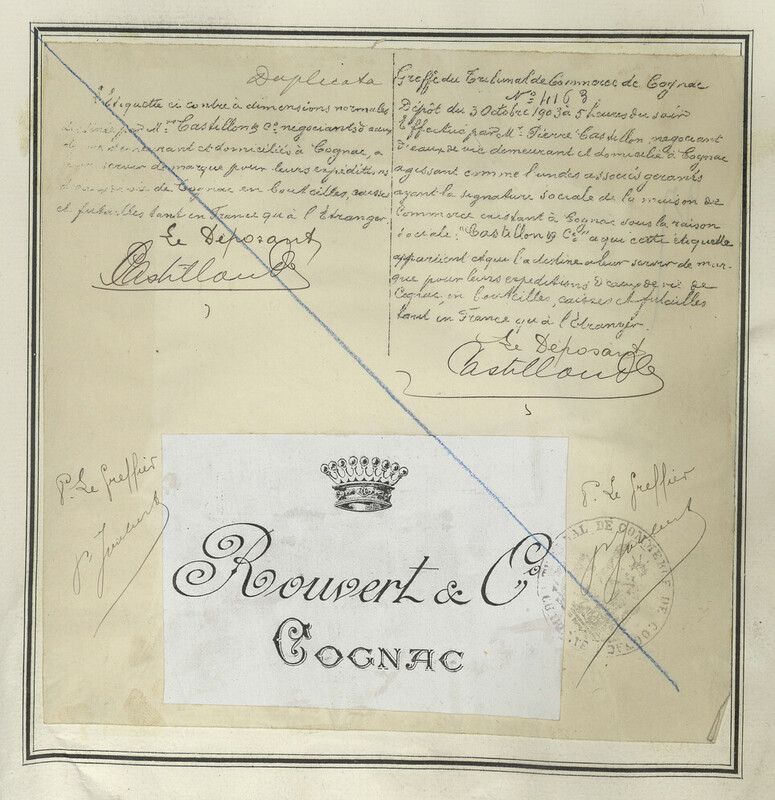 Duplicata
L'Etiquette ci contre à dimensions normales
par M. Castillon & Cie negociants d'eaux
de vie demeurant et domiciliés à Cognac, a
servir de marque pour leurs expéditions
d'eaux de vie de Cognac en bouteilles, caisses
et futailles tant en France qu'à l'Etranger.
Le Déposant
Castillon & Cie
Greffe du Tribunal de Commerce de Cognac
N° 4163
Dépôt du 3 Octobre 1903 à 5 heures du soir
Effectué par M. Pierre Castillon negociant
d'eaux de vie demeurant et domicilié à Cognac
agissant comme l'un des associés gerants
ayant la signature sociale de la maison de
Commerce existant à Cognac sous la raison
sociale: "Castillon & Cie" a qui cette étiquette
appartient et qui l'a destine a leur servir de mar-
que pour leurs expeditions d'eaux de vie de
Cognac, en bouteilles, caisses et futailles
tant en France qu'à l'Etranger.
Le Déposant
Castillon & Cie
P. Le Greffier
P. Le Greffier
Rouvert & Co
COGNAC
TRIBUNAL DE COMMERCE DE COGNAC